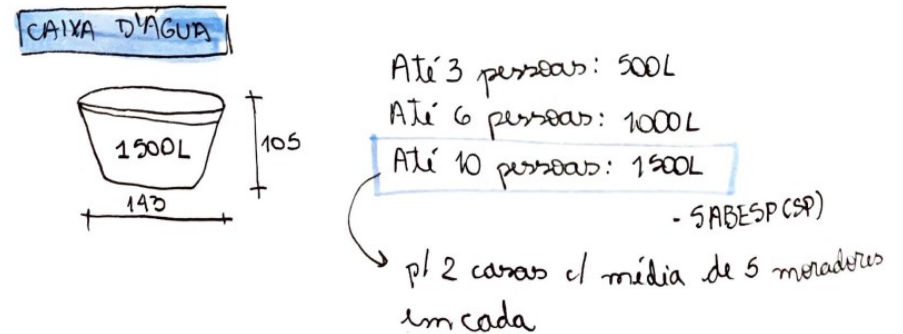 CAIXA D'ÁGUA
1500L
105
143
Até 3 pessoas: 500L
Até 6 pessoas: 1000L
Até 10 pessoas: 1500L
- SABESP (SP)
p/ 2 casas c/ média de 5 moradores
em cada